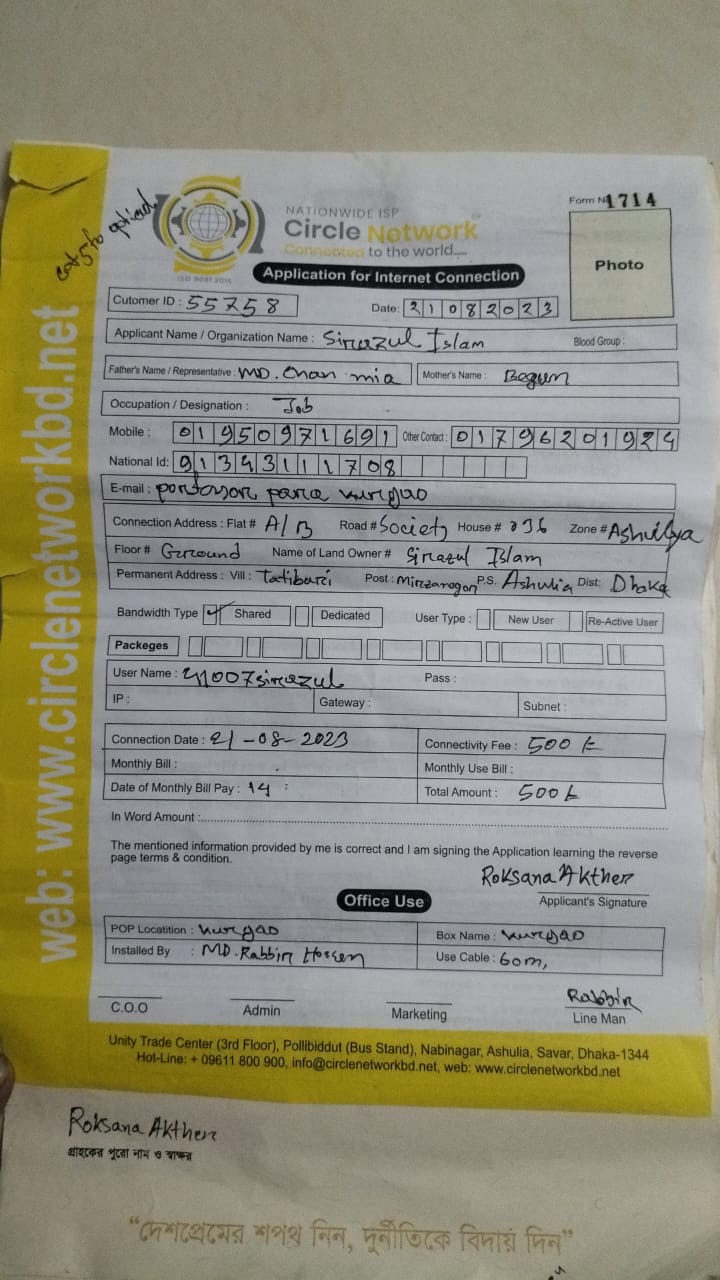 Form No 1714
NATIONWIDE ISP
Circle Network
Connected to the world.....
ISO 9001:2015
cat5 to optical
Application for Internet Connection
Photo
Cutomer ID : 55758
Date: 21082023
Applicant Name / Organization Name : Sirazul Islam
Blood Group :
Father's Name / Representative : MD. Chan mia
Mother's Name : Begum
Occupation / Designation : Job
Mobile : 01950971691 Other Contact : 01796201924
National Id: 9134311708
E-mail : para nurgao
Connection Address : Flat # A/B Road # Society House # 036 Zone # Ashuliya
Floor # Ground Name of Land Owner # Sirazul Islam
Permanent Address : Vill : Tatibari Post : Mirzanagar P.S. Ashulia Dist: Dhaka
Bandwidth Type Shared Dedicated User Type : New User Re-Active User
Packeges
User Name : 41007sirazul Pass :
IP : Gateway : Subnet :
Connection Date : 21-08-2023 Connectivity Fee : 500 t
Monthly Bill : Monthly Use Bill :
Date of Monthly Bill Pay : 14 : Total Amount : 500 t
In Word Amount :
The mentioned information provided by me is correct and I am signing the Application learning the reverse
page terms & condition.
Roksana Akther
Applicant's Signature
Office Use
POP Locatition : nurgao Box Name : nurgao
Installed By : MD. Rabbir Hossen Use Cable : 60m,
Rabbir
C.O.O Admin Marketing Line Man
Unity Trade Center (3rd Floor), Pollibiddut (Bus Stand), Nabinagar, Ashulia, Savar, Dhaka-1344
Hot-Line: + 09611 800 900, info@circlenetworkbd.net, web: www.circlenetworkbd.net
web: www.circlenetworkbd.net
Roksana Akther
গ্রাহকের পুরো নাম ও স্বাক্ষর
“দেশপ্রেমের শপথ নিন, দুর্নীতিকে বিদায় দিন”